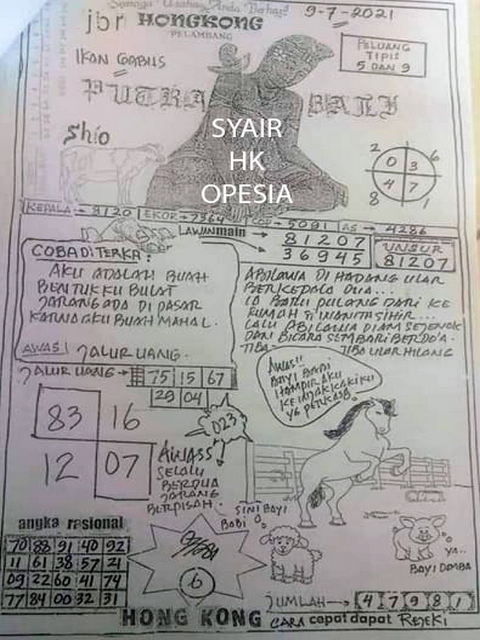 Semoga Usaha Anda Berhasil
9-7-2021
jbr HONGKONG
PELAMBANG
PELUANG
TIPIS
5 DAN 9
IKAN GABUS
PUTRA
SYAIR
HK
OPESIA
Shio
2 0 3 6
8 4 7 1
KEPALA → 8120 EKOR → 7364
5091 AS → 4286
LAWINmain → 81207
36945
UNSUR
81207
COBA DITERKA:
AKU ADALAH BUAH
BENTUKKU BULAT
JARANG ADA DI PASAR
KARNA AKU BUAH MAHAL.
AWAS! JALUR UANG.
ABILAWA DI HADANG ULAR
BERKEPALA DUA...
IA BARU PULANG DARI KE
RUMAH SI WANITA SIHIR...
LALU ABILAWA DIAM SEJENAK
DAN BICARA SEMBARI BERDO'A.
TIBA- TIBA ULAR HILANG
JALUR UANG → 75 15 67
29 04
AWAS!!
BAYI BABI
HAMPIR AKU
KEINJAK KAKIKU
YG PERKASA.
83 16
12 07
023
AWASS!
SELALU
BERDUA
JARANG
BERPISAH.
SINI BAYI
BABI
YA..
BAYI DOMBA
angka rasional
70 88 91 40 92
11 61 38 57 21
09 22 60 41 74
77 84 00 32 31
6
JUMLAH → 4 7 9 8 1
HONG KONG CARA cepat dapat REJEKI